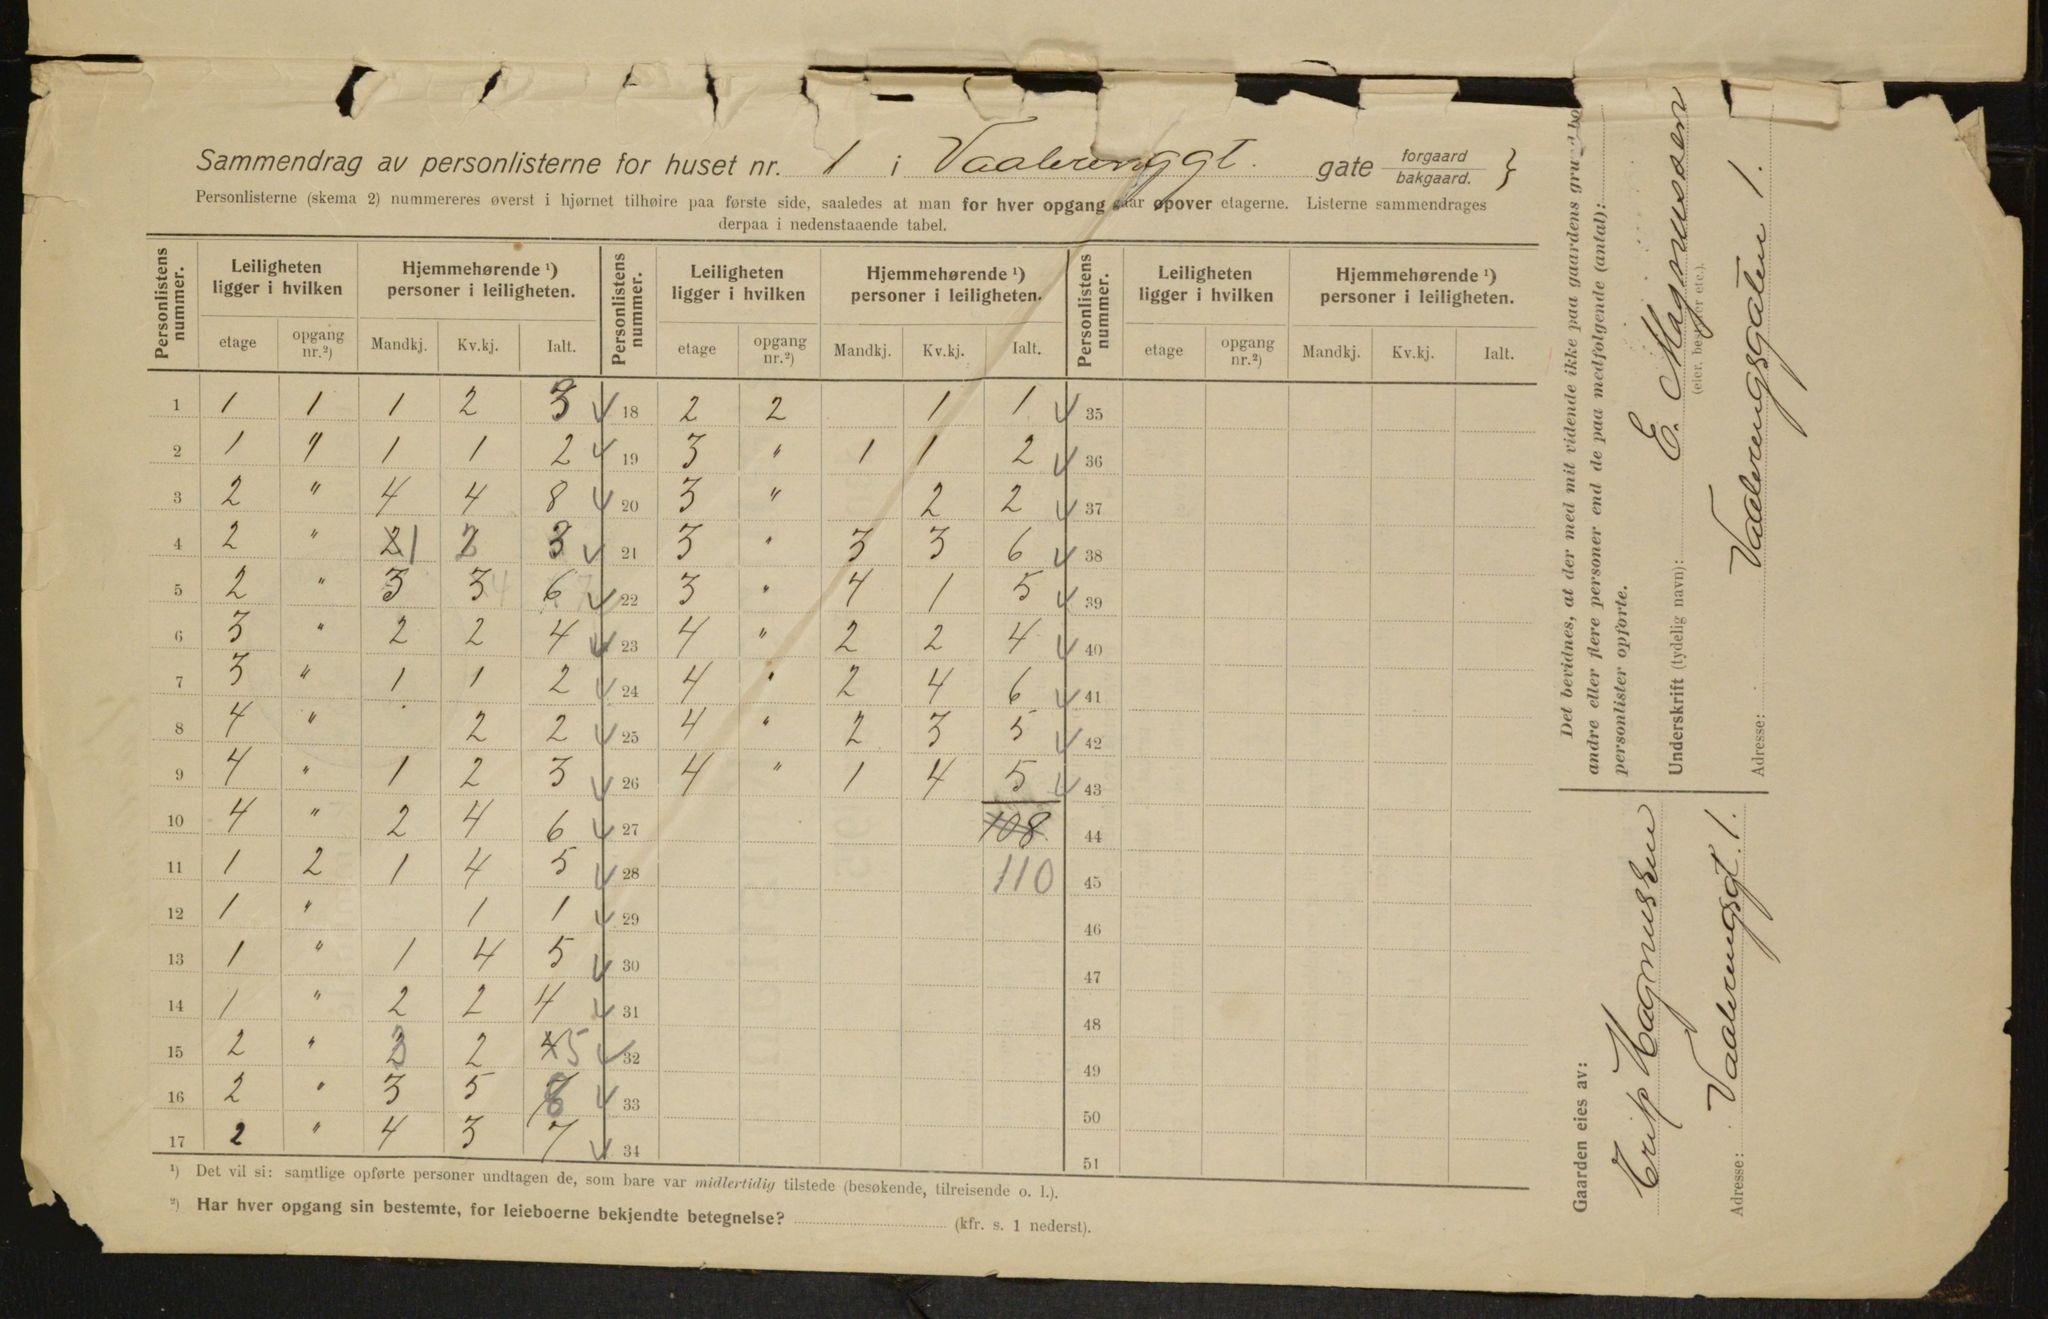 Sammendrag av personlisterne for huset nr. 1 i Vaalerenggt. gate forgaard bakgaard. }
Personlisterne (skema 2) nummereres øverst i hjørnet tilhøire paa første side, saaledes at man for hver opgang gaar opover etagerne. Listerne sammendrages
derpaa i nedenstaaende tabel.
Personlistens nummer. Leiligheten ligger i hvilken Hjemmehørende ¹) personer i leiligheten. Personlistens nummer. Leiligheten ligger i hvilken Hjemmehørende ¹) personer i leiligheten. Personlistens nummer. Leiligheten ligger i hvilken Hjemmehørende ¹) personer i leiligheten.
etage opgang nr.²) Mandkj. Kv.kj. Ialt. etage opgang nr.²) Mandkj. Kv.kj. Ialt. etage opgang nr.²) Mandkj. Kv.kj. Ialt.
1 1 1 1 2 3 18 2 2 1 1 35
2 1 " 1 1 2 19 3 " 1 1 2 36
3 2 " 4 4 8 20 3 " 2 2 37
4 2 " 2 1 2 3 21 3 " 3 3 6 38
5 2 " 3 3 4 6 7 22 3 " 4 1 5 39
6 3 " 2 2 4 23 4 " 2 2 4 40
7 3 " 1 1 2 24 4 " 2 4 6 41
8 4 " 2 2 25 4 " 2 3 5 42
9 4 " 1 2 3 26 4 " 1 4 5 43
10 4 " 2 4 6 27 108 44
11 1 2 1 4 5 28 110 45
12 1 " 1 1 29 46
13 1 " 1 4 5 30 47
14 1 " 2 2 4 31 48
15 2 " 3 2 4 5 32 49
16 2 " 3 5 8 33 50
17 2 " 4 3 7 34 51
¹) Det vil si: samtlige opførte personer undtagen de, som bare var midlertidig tilstede (besøkende, tilreisende o. l.).
²) Har hver opgang sin bestemte, for leieboerne bekjendte betegnelse? (kfr. s. 1 nederst).
Det bevidnes, at der med mit vidende ikke paa gaardens
andre eller flere personer end de paa medfølgende (antal):
personlister opførte.
Underskrift (tydelig navn): E. Magnussen
(eier, bestyrer etc.).
Adresse: Vaalerengsgaten 1.
Gaarden eies av:
Erik Magnussen
Adresse: Vaalerengsgt. 1.